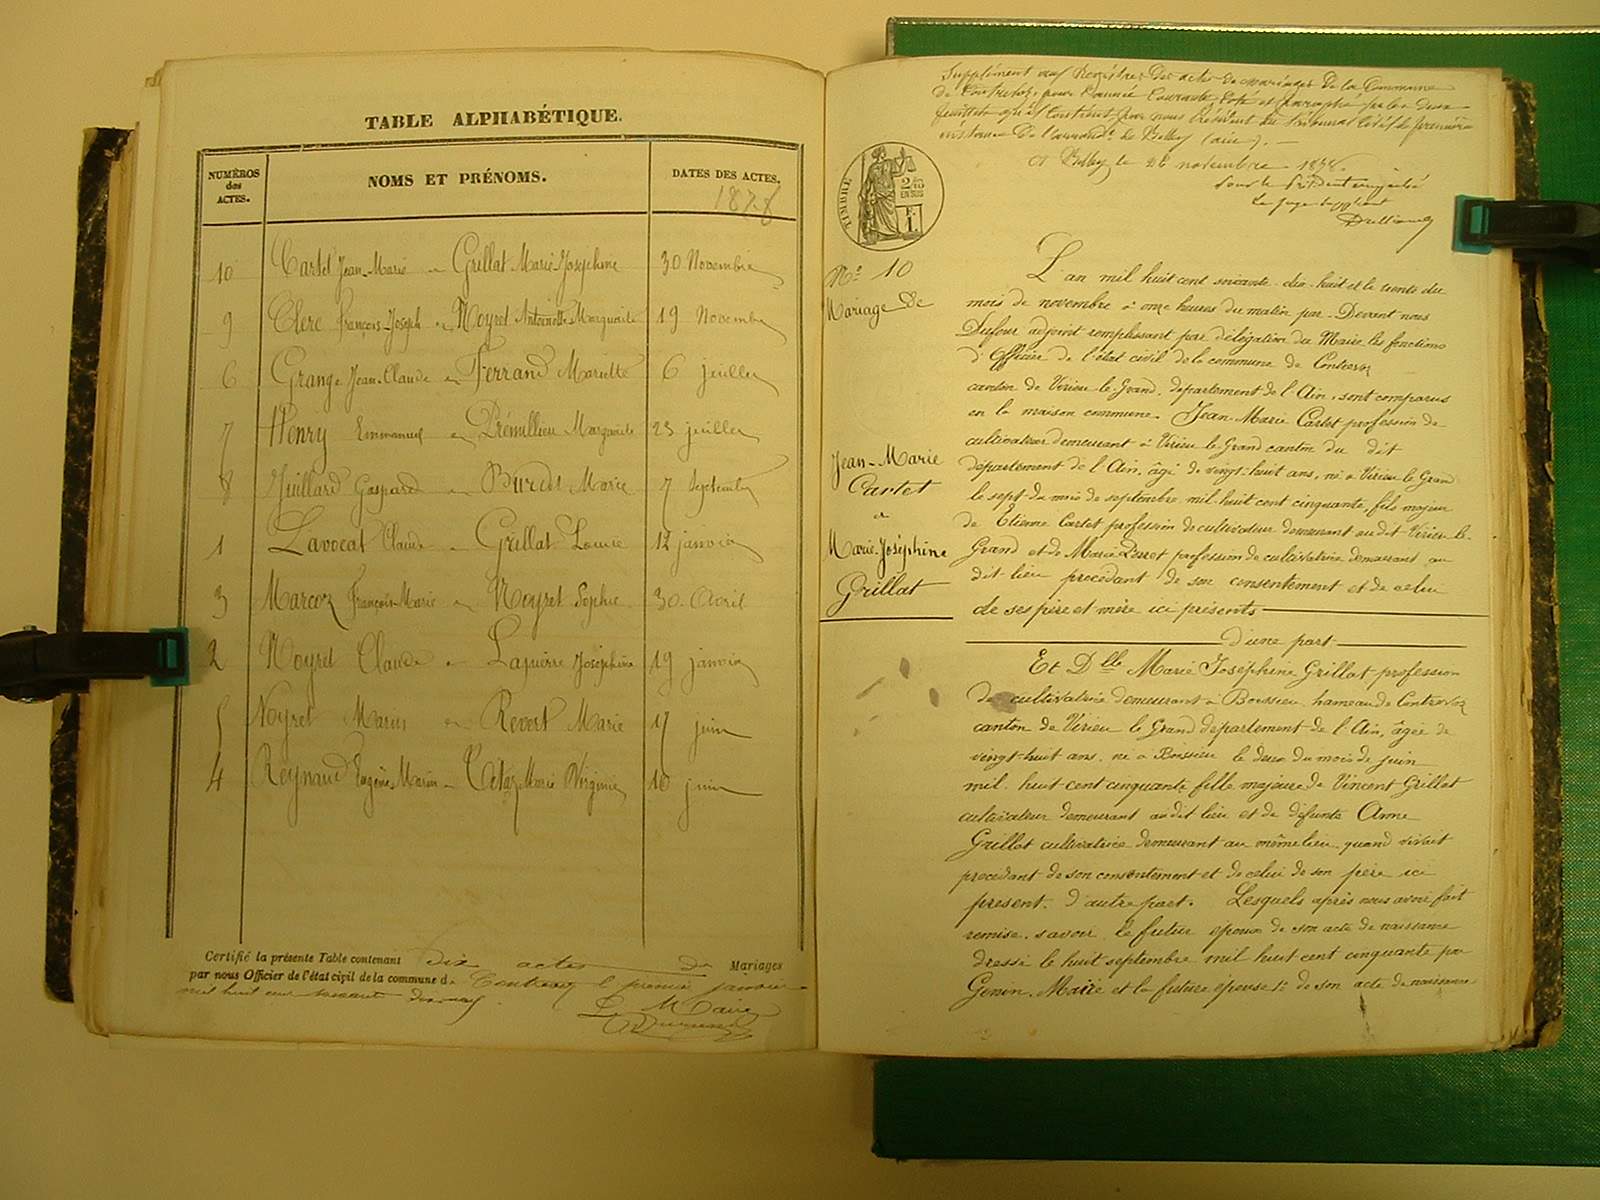 TABLE ALPHABÉTIQUE.
NUMÉROS des ACTES.
NOMS ET PRÉNOMS.
DATES DES ACTES.
1878
10 Cartet Jean-Marie et Grillat Marie-Joséphine 30 Novembre
9 Clerc François-Joseph et Noyret Antoinette Marguerite 19 Novembre
6 Grange Jean-Claude et Ferrand Mariette 6 juillet
7 Henry Emmanuel et Prémillieu Marguerite 23 juillet
8 Juillard Gaspard et Burdet Marie 7 Septembre
1 Lavocat Claude et Grillat Louise 12 janvier
3 Marcoz François-Marie et Noyret Sophie 30 Avril
2 Noyret Claude et Joséphine 19 janvier
5 Noyret Marin et Revert Marie 17 juin
4 Reynaud Eugène Marin et Marie Virginie 10 juin
Certifié la présente Table contenant dix actes de Mariages
par nous Officier de l'état civil de la commune de Contrevoz le premier janvier
mil huit cent soixante dix neuf.
Le Maire
Supplément aux Registres des actes de mariages de la Commune
de Contrevoz, pour l'année Courante Coté et paraphé par les deux
feuillets qu'il Contient par nous Président du Tribunal Civil de première
instance De l'arrondt de Belley (ain). —
A Belley le 28 novembre 1878.
Pour le Président empêché
Le juge suppléant
TIMBRE
2/10 EN SUS
F. 1.
No 10
Mariage de
Jean-Marie
Cartet
et
Marie-Joséphine
Grillat
L'an mil huit cent soixante-dix-huit et le trente du
mois de novembre à onze heures du matin par-Devant nous
Dufour adjoint remplissant par délégation du Maire les fonctions
d'Officier de l'état civil de la commune de Contrevoz
canton de Virieu-le-Grand, département de l'Ain, sont comparus
en la maison commune. Jean-Marie Cartet profession de
cultivateur demeurant à Virieu le Grand canton du dit
département de l'Ain, âgé de vingt-huit ans, né à Virieu le Grand
le sept du mois de septembre mil huit cent cinquante, fils majeur
de Etienne Cartet profession de cultivateur demeurant au dit Virieu-le-
Grand et de Marie Perret profession de cultivatrice demeurant au
dit lieu procédant de son consentement et de celui
de ses père et mère ici présents
d'une part
Et Dlle Marie Joséphine Grillat profession
de cultivatrice demeurant à Boissieu, hameau de Contrevoz
canton de Virieu le Grand département de l'Ain, âgée de
vingt-huit ans, né à Boissieu le deux du mois de juin
mil huit cent cinquante fille majeure de Vincent Grillat
cultivateur demeurant au dit lieu et de défunte Anne
Grillat cultivatrice demeurant au même lieu quand vivait
procédant de son consentement et de celui de son père ici
présent. d'autre part. Lesquels après nous avoir fait
remise, savoir le futur époux de son acte de naissance
dressé le huit septembre mil huit cent cinquante par
Genin, Maire et la future épouse 1o de son acte de naissance